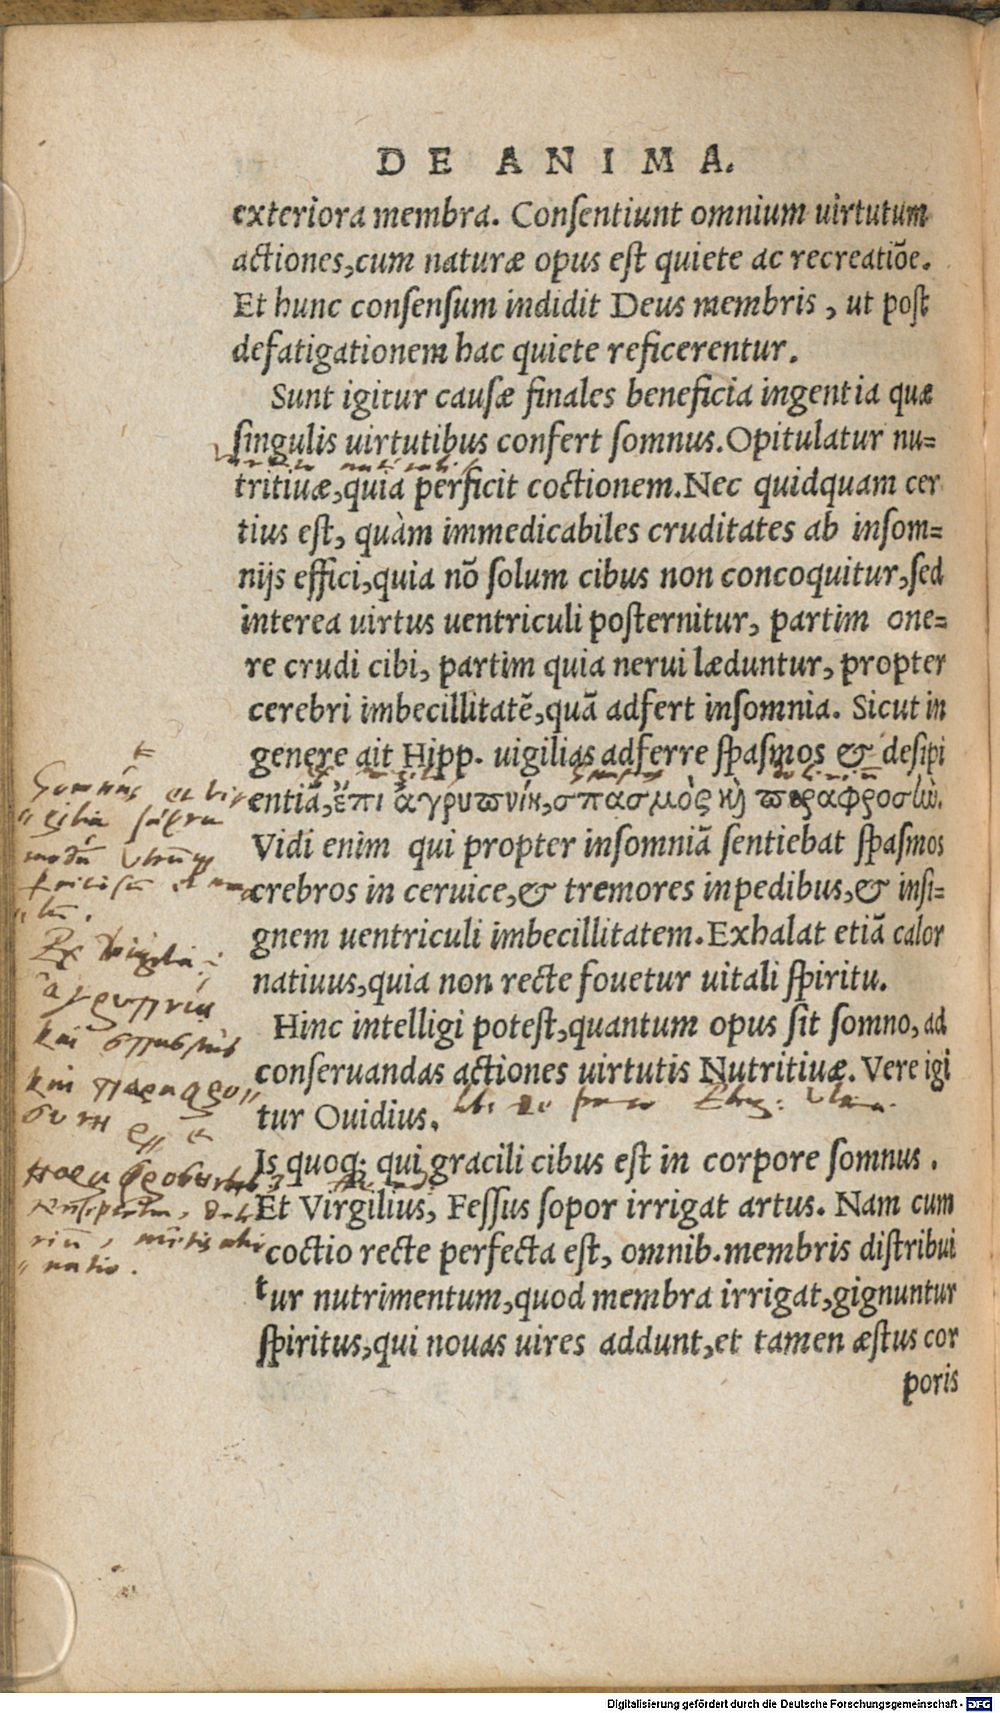 DE ANIMA.
exteriora membra. Consentiunt omnium uirtutum
actiones, cum naturæ opus est quiete ac recreatiõe.
Et hunc consensum indidit Deus membris, ut post
defatigationem hac quiete reficerentur.
Sunt igitur causæ finales beneficia ingentia quæ
singulis uirtutibus confert somnus. Opitulatur nu=
tritiuæ, quia perficit coctionem. Nec quidquam cer
tius est, quàm immedicabiles cruditates ab insom=
nijs effici, quia nõ solum cibus non concoquitur, sed
interea uirtus uentriculi posternitur, partim one=
re crudi cibi, partim quia nerui læduntur, propter
cerebri imbecillitatẽ, quã adfert insomnia. Sicut in
genere ait Hipp. uigilias adferre spasmos & desipi
entiã, ἔπι ἀγρυπνίη, σπασμὸς κỳ παραφροσιώ.
Vidi enim qui propter insomniã sentiebat spasmos
crebros in ceruice, & tremores in pedibus, & insi=
gnem uentriculi imbecillitatem. Exhalat etiã calor
natiuus, quia non recte fouetur uitali spiritu.
Hinc intelligi potest, quantum opus sit somno, ad
conseruandas actiones uirtutis Nutritiuæ. Vere igi
tur Ouidius.
Is quoq; qui gracili cibus est in corpore somnus.
Et Virgilius, Fessus sopor irrigat artus. Nam cum
coctio recte perfecta est, omnib. membris distribui
tur nutrimentum, quod membra irrigat, gignuntur
spiritus, qui nouas uires addunt, et tamen æstus cor
poris
Somnus et vi
gilia supra
modũ
Ex vigilia
ἀγρυπνίη
καὶ σπασμὸς
καὶ παραφρο"
σύνη
Digitalisierung gefördert durch die Deutsche Forschungsgemeinschaft - DFG